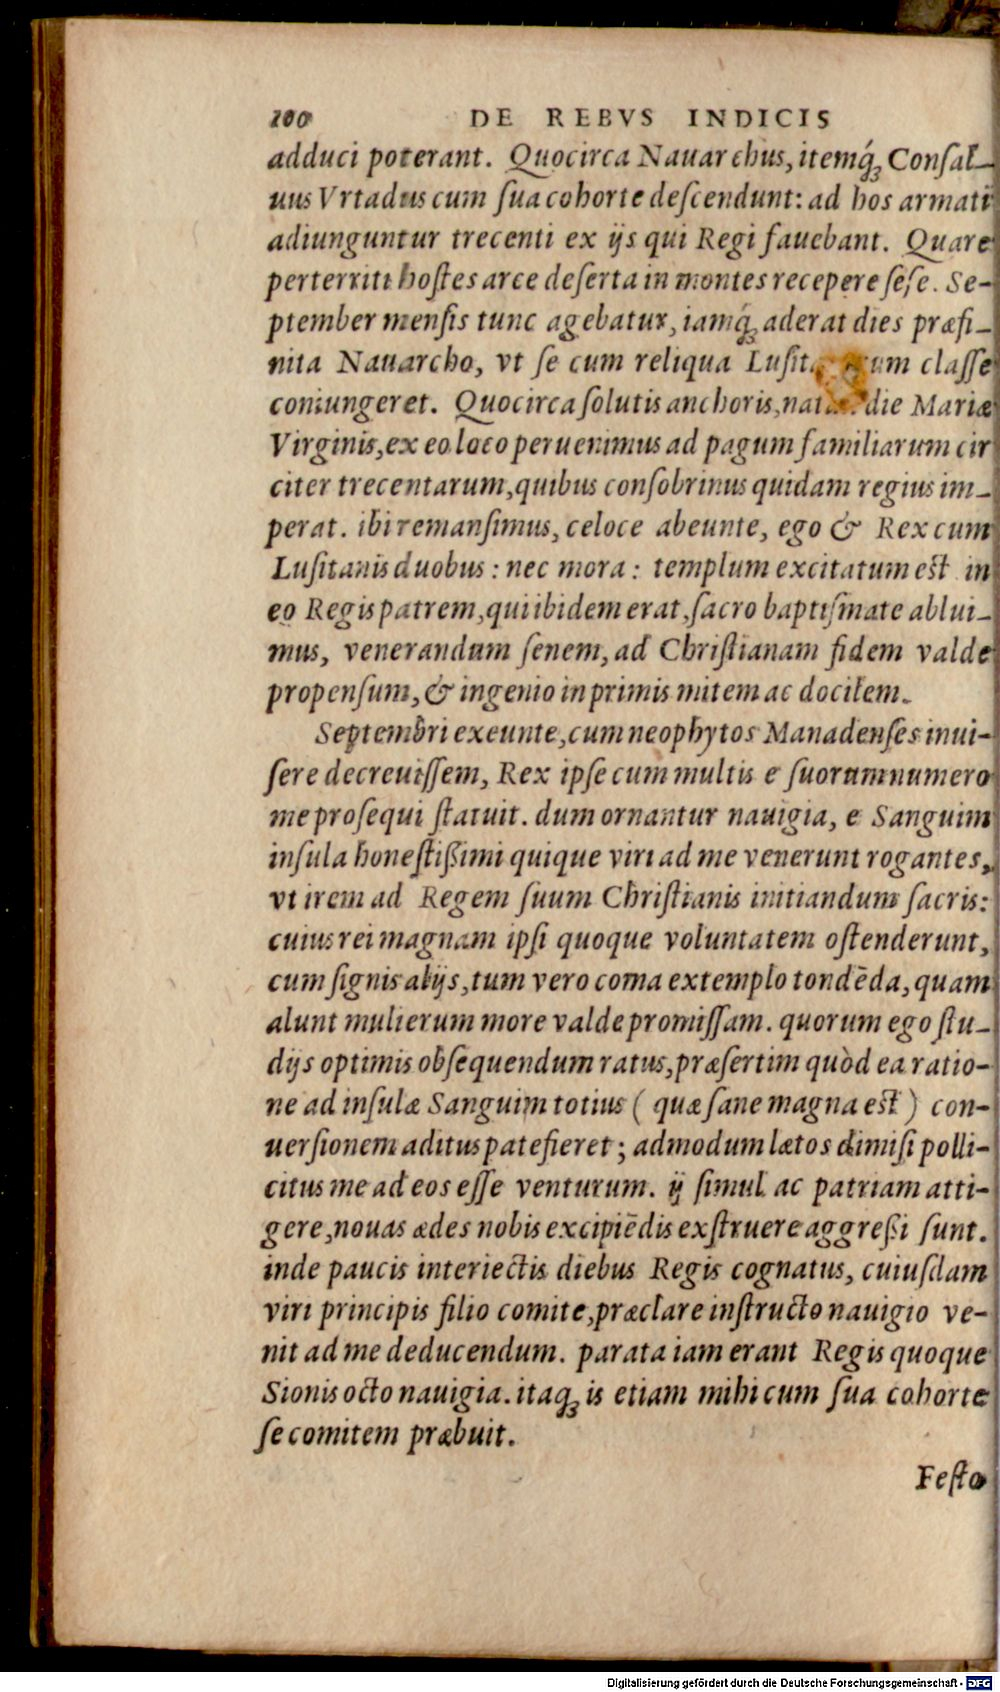 100 DE REBVS INDICIS
adduci poterant. Quocirca Nauarchus, itemq́ꝫ Consal-
uus Vrtadus cum sua cohorte descendunt: ad hos armati
adiunguntur trecenti ex ijs qui Regi fauebant. Quare
perterriti hostes arce deserta in montes recepere sese. Se-
ptember mensis tunc agebatur, iamq́ꝫ aderat dies præfi-
nita Nauarcho, vt se cum reliqua classe
coniungeret. Quocirca solutis anchoris, die Mariæ
Virginis, ex eo loco peruenimus ad pagum familiarum cir
citer trecentarum, quibus consobrinus quidam regius im-
perat. ibi remansimus, celoce abeunte, ego & Rex cum
Lusitanis duobus: nec mora: templum excitatum est in
eo Regis patrem, qui ibidem erat, sacro baptismate ablui-
mus, venerandum senem, ad Christianam fidem valde
propensum, & ingenio in primis mitem ac docilem.
Septembri exeunte, cum neophytos Manadenses inui-
sere decreuissem, Rex ipse cum multis e suorum numero
me prosequi statuit. dum ornantur nauigia, e Sanguim
insula honestißimi quique viri ad me venerunt rogantes,
vt irem ad Regem suum Christianis initiandum sacris:
cuius rei magnam ipsi quoque voluntatem ostenderunt,
cum signis alijs, tum vero coma extemplo tondēda, quam
alunt mulierum more valde promissam. quorum ego stu-
dijs optimis obsequendum ratus, præsertim quòd ea ratio-
ne ad insulæ Sanguim totius ( quæ sane magna est ) con-
uersionem aditus patefieret; admodum lætos dimisi polli-
citus me ad eos esse venturum. ij simul ac patriam atti-
gere, nouas ædes nobis excipiēdis exstruere aggreßi sunt.
inde paucis interiectis diebus Regis cognatus, cuiusdam
viri principis filio comite, præclare instructo nauigio ve-
nit ad me deducendum. parata iam erant Regis quoque
Sionis octo nauigia. itaqꝫ is etiam mihi cum sua cohorte
se comitem præbuit.
Festo
Digitalisierung gefördert durch die Deutsche Forschungsgemeinschaft - DFG